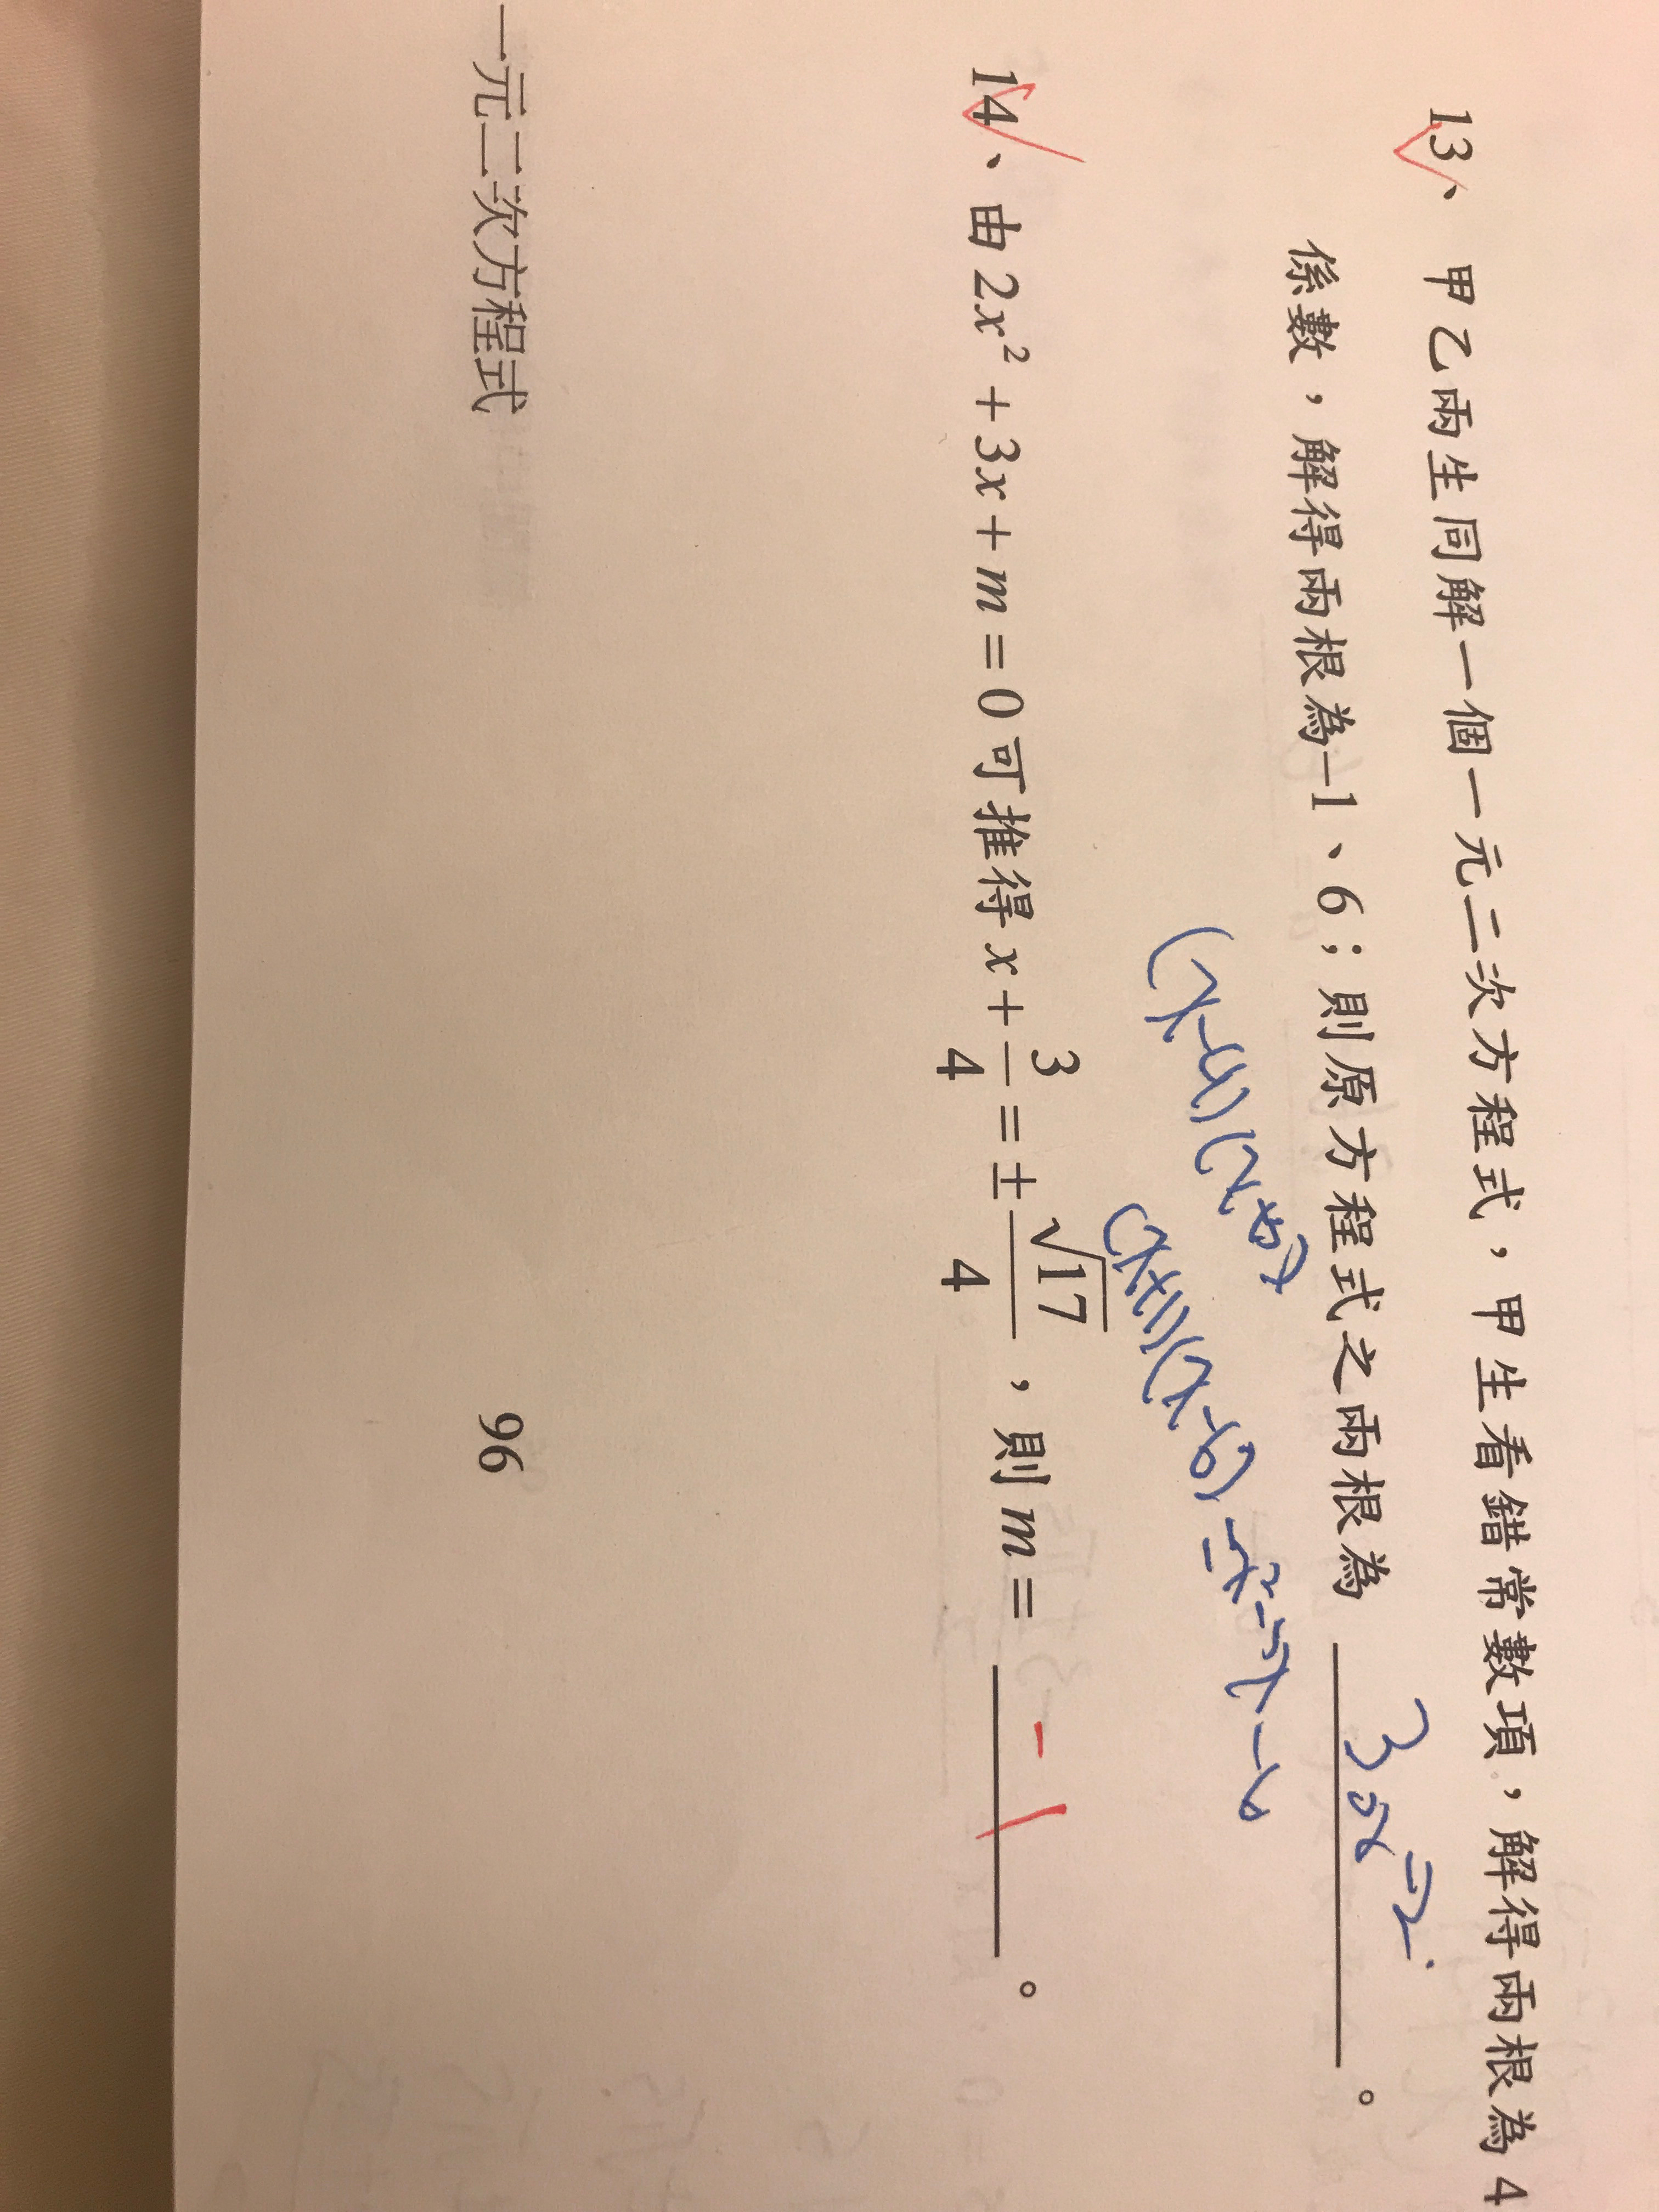 13、甲乙兩生同解一個一元二次方程式，甲生看錯常數項，解得兩根為4
係數，解得兩根為−1、6；則原方程式之兩根為 3 or −2 。
(x+1)(x-6) = x²-5x-6
14、由 2x² + 3x + m = 0 可推得 x + 3/4 = ± √17/4 ，則 m = -1 。
一元二次方程式 96